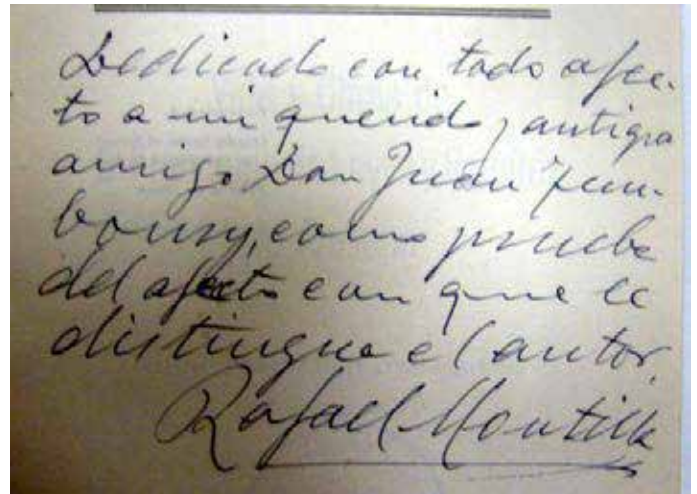 Dedicado con todo afec-
to a mi querido y antiguo
amigo Don Juan Tem-
boury, como prueba
del afecto con que le
distingue el autor.
Rafael Montilla